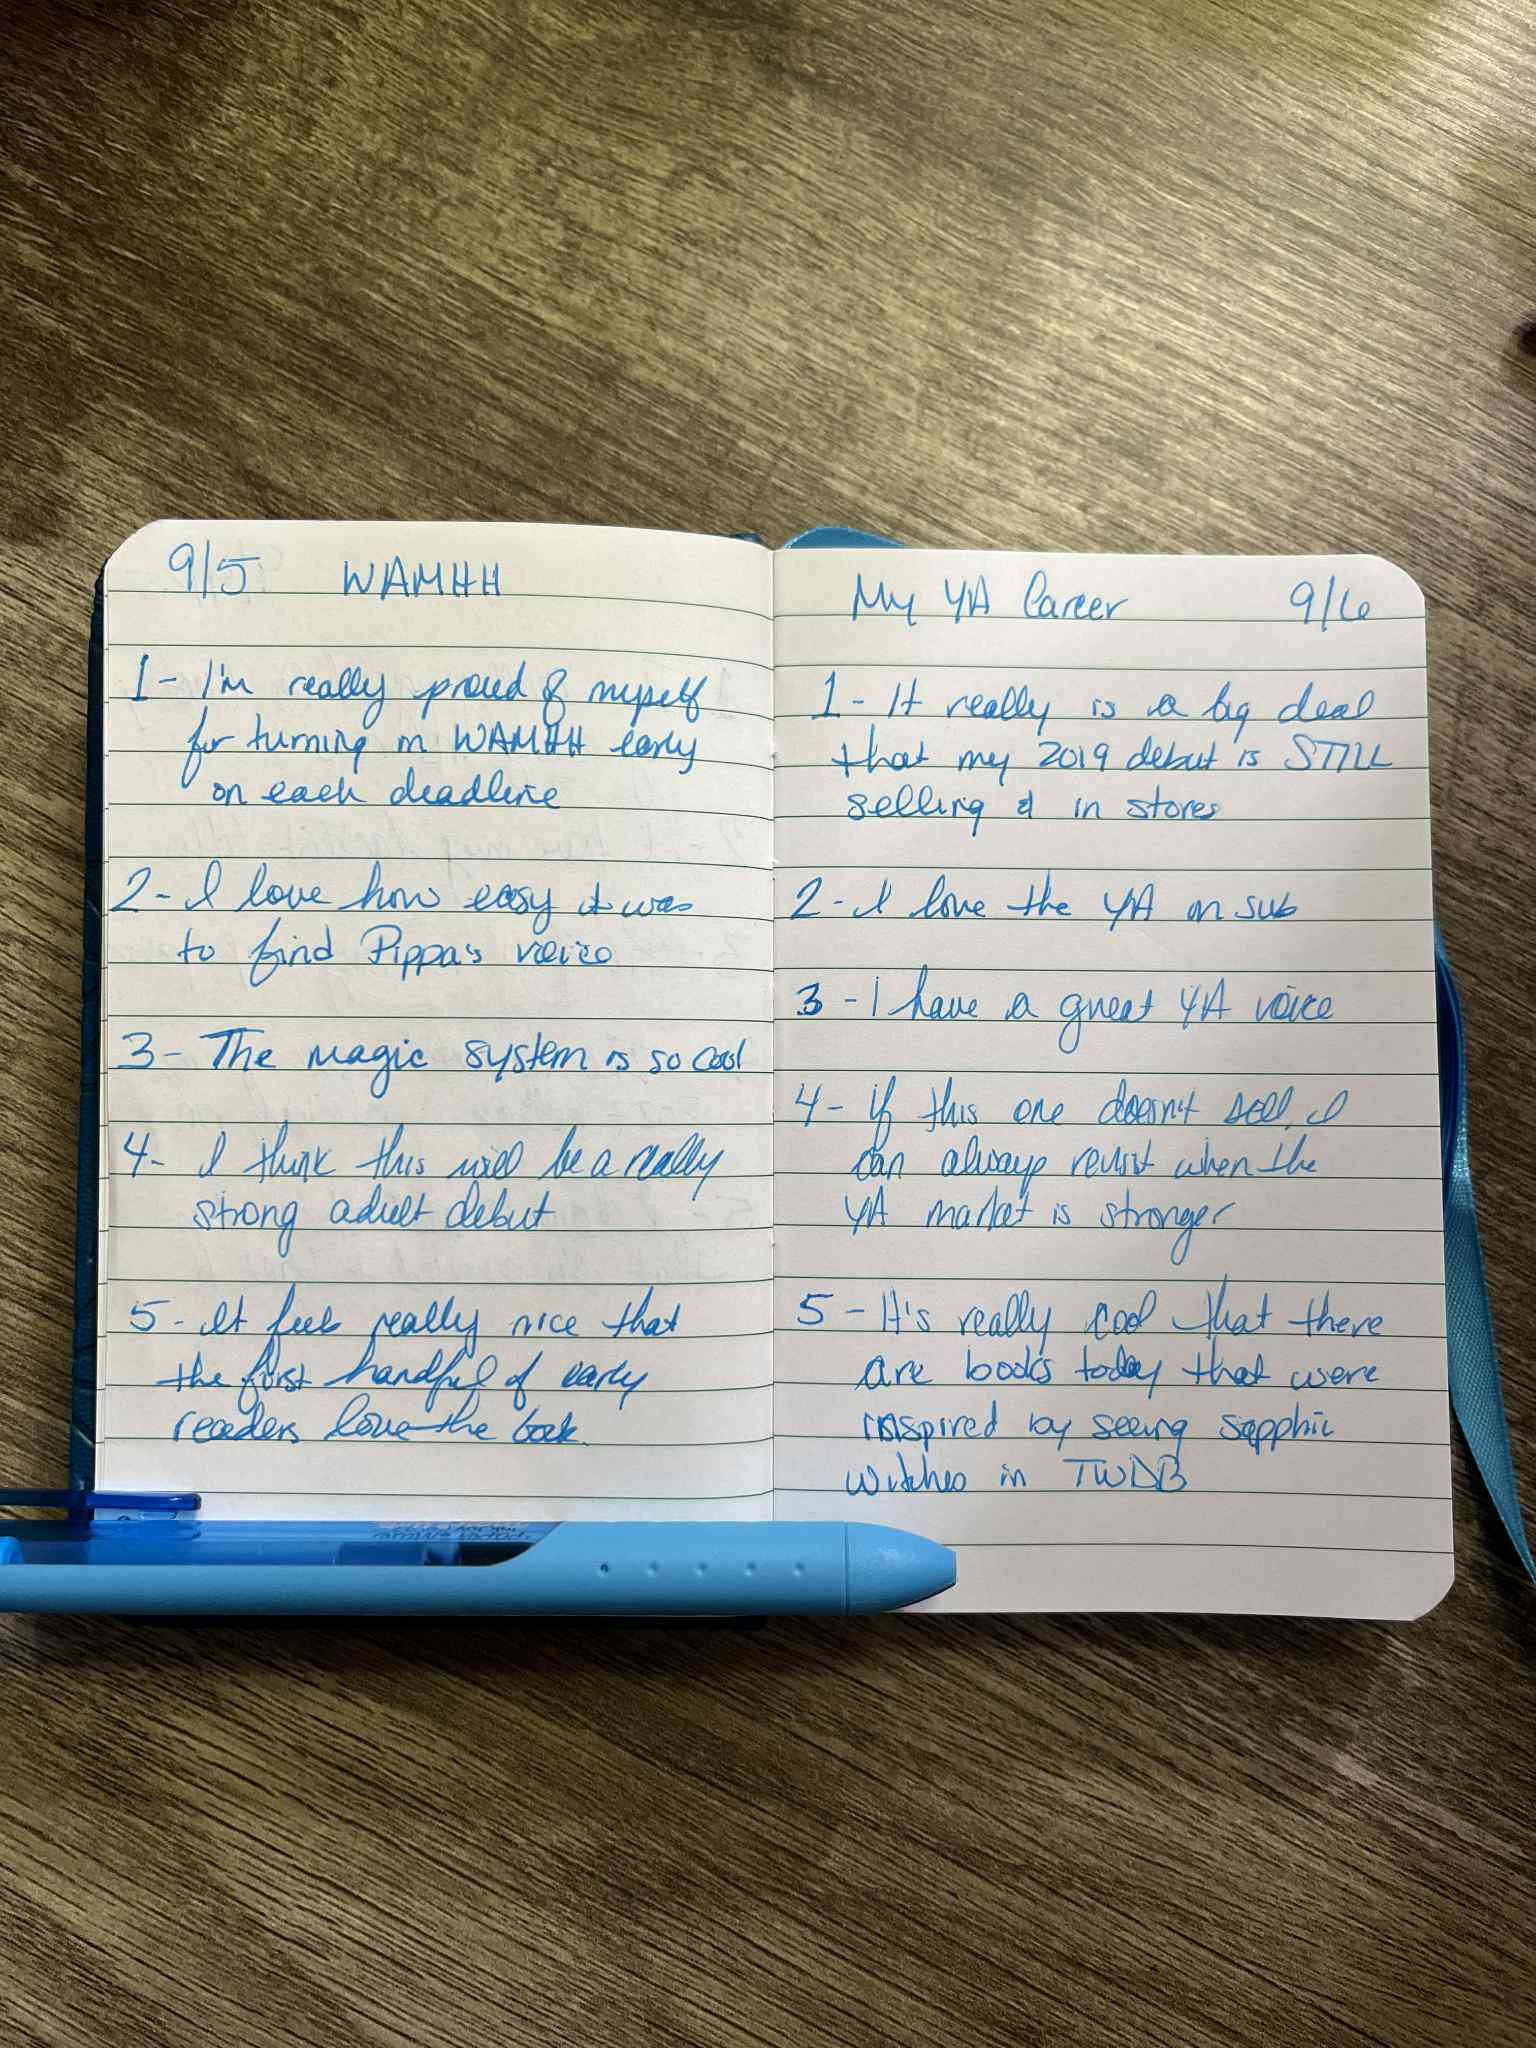 9/5 WAMHH
1- I'm really proud of myself
for turning in WAMHH early
on each deadline
2- I love how easy it was
to find Pippa's voice
3- The magic system is so cool
4- I think this will be a really
strong adult debut
5- It feels really nice that
the first handful of early
readers love the book.
My YA Career 9/6
1- It really is a big deal
that my 2019 debut is STILL
selling & in stores
2- I love the YA on sub
3- I have a great YA voice
4- If this one doesn't sell, I
can always revisit when the
YA market is stronger
5- It's really cool that there
are books today that were
inspired by seeing sapphic
witches in TWDB